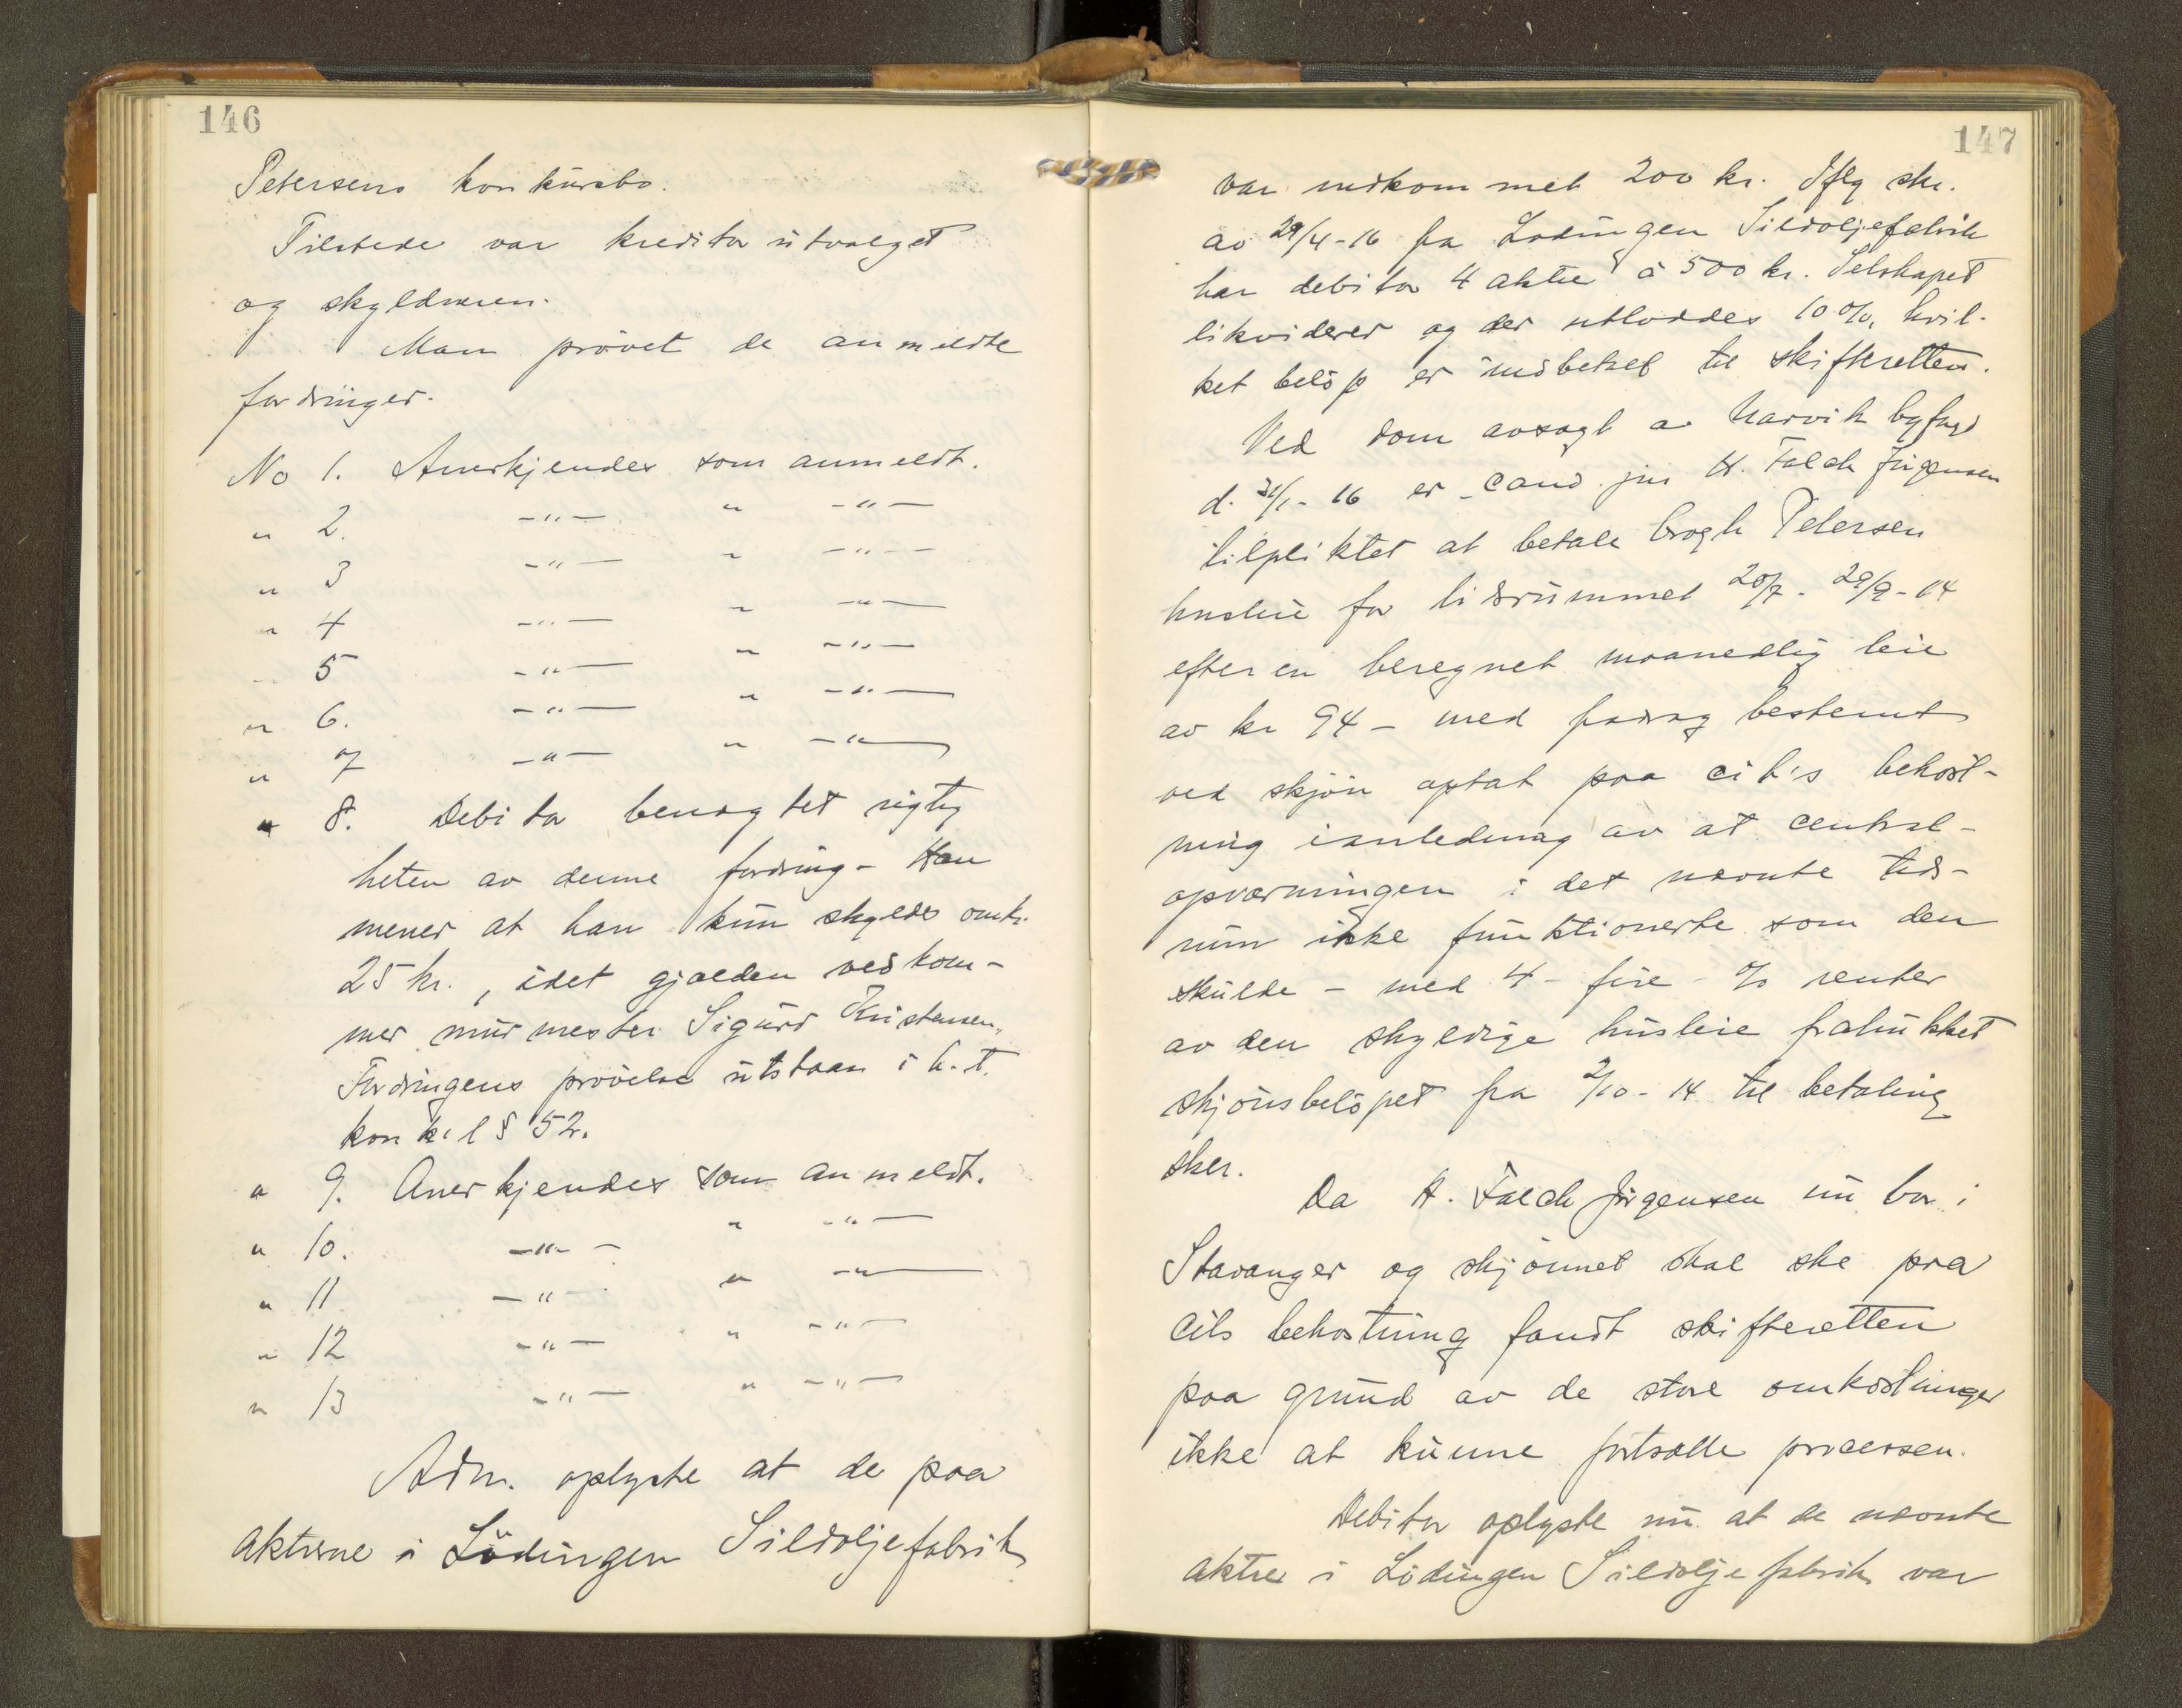 146
Petersens konkursbo.
Tilstede var kreditorutvalget
og skyldneren.
Man prøvet de anmeldte
fordringer.
No 1. Anerkjendes som anmeldt.
" 2. -"- " -"-
" 3 -"- " -"-
" 4 -"- " -"-
" 5 -"- " -"-
" 6. -"- " -"-
" 7 -"- " -"-
" 8. Debitor benegtet rigtig
heten av denne fordring - Han
mener at han kun skylder omkr.
25 kr., idet gjælden vedkom-
mer murmester Sigurd Kristensen.
Fordringens prøvelse utstaar i h. t.
konk. l § 52.
" 9. Anerkjendes som anmeldt.
" 10. -"- " -"-
" 11 -"- " -"-
" 12 -"- " -"-
" 13 -"- " -"-
Adm. oplyste at de paa
aktierne i Lödingen Sildoljefabrik
147
var indkommet 200 kr. Iflg skr.
av 29/4-16 fra Lødingen Sildoljefabrik
har debitor 4 aktier á 500 kr. Selskapet
likviderer og der utloddes 10%, hvil-
ket beløp er indbetalt til skifteretten.
Ved dom avsagt av Narvik byfogd
d. 31/1-16 er cand. jur H. Falch Jørgensen
tilpliktet at betale Krogh Petersen
husleie for tidsrummet 20/7 - 29/9-14
efter en beregnet maanedlig leie
av kr 94 - med fradrag bestemt
ved skjøn optat paa cit's bekost-
ning i anledning av at central-
opvarmningen i det nævnte tids-
rum ikke funktionerte som den
skulde - med 4 - fire - % renter
av den skyldige husleie fratrukket
skjønsbeløpet fra 2/10-14 til betaling
sker.
Da H. Falch Jørgensen nu bor i
Stavanger og skjønnet skal ske paa
cits bekostning fandt skifteretten
paa grund av de store omkostninger
ikke at kunne fortsætte processen.
Debitor oplyste nu at de nævnte
aktier i Lödingen Sildoljefabrik var